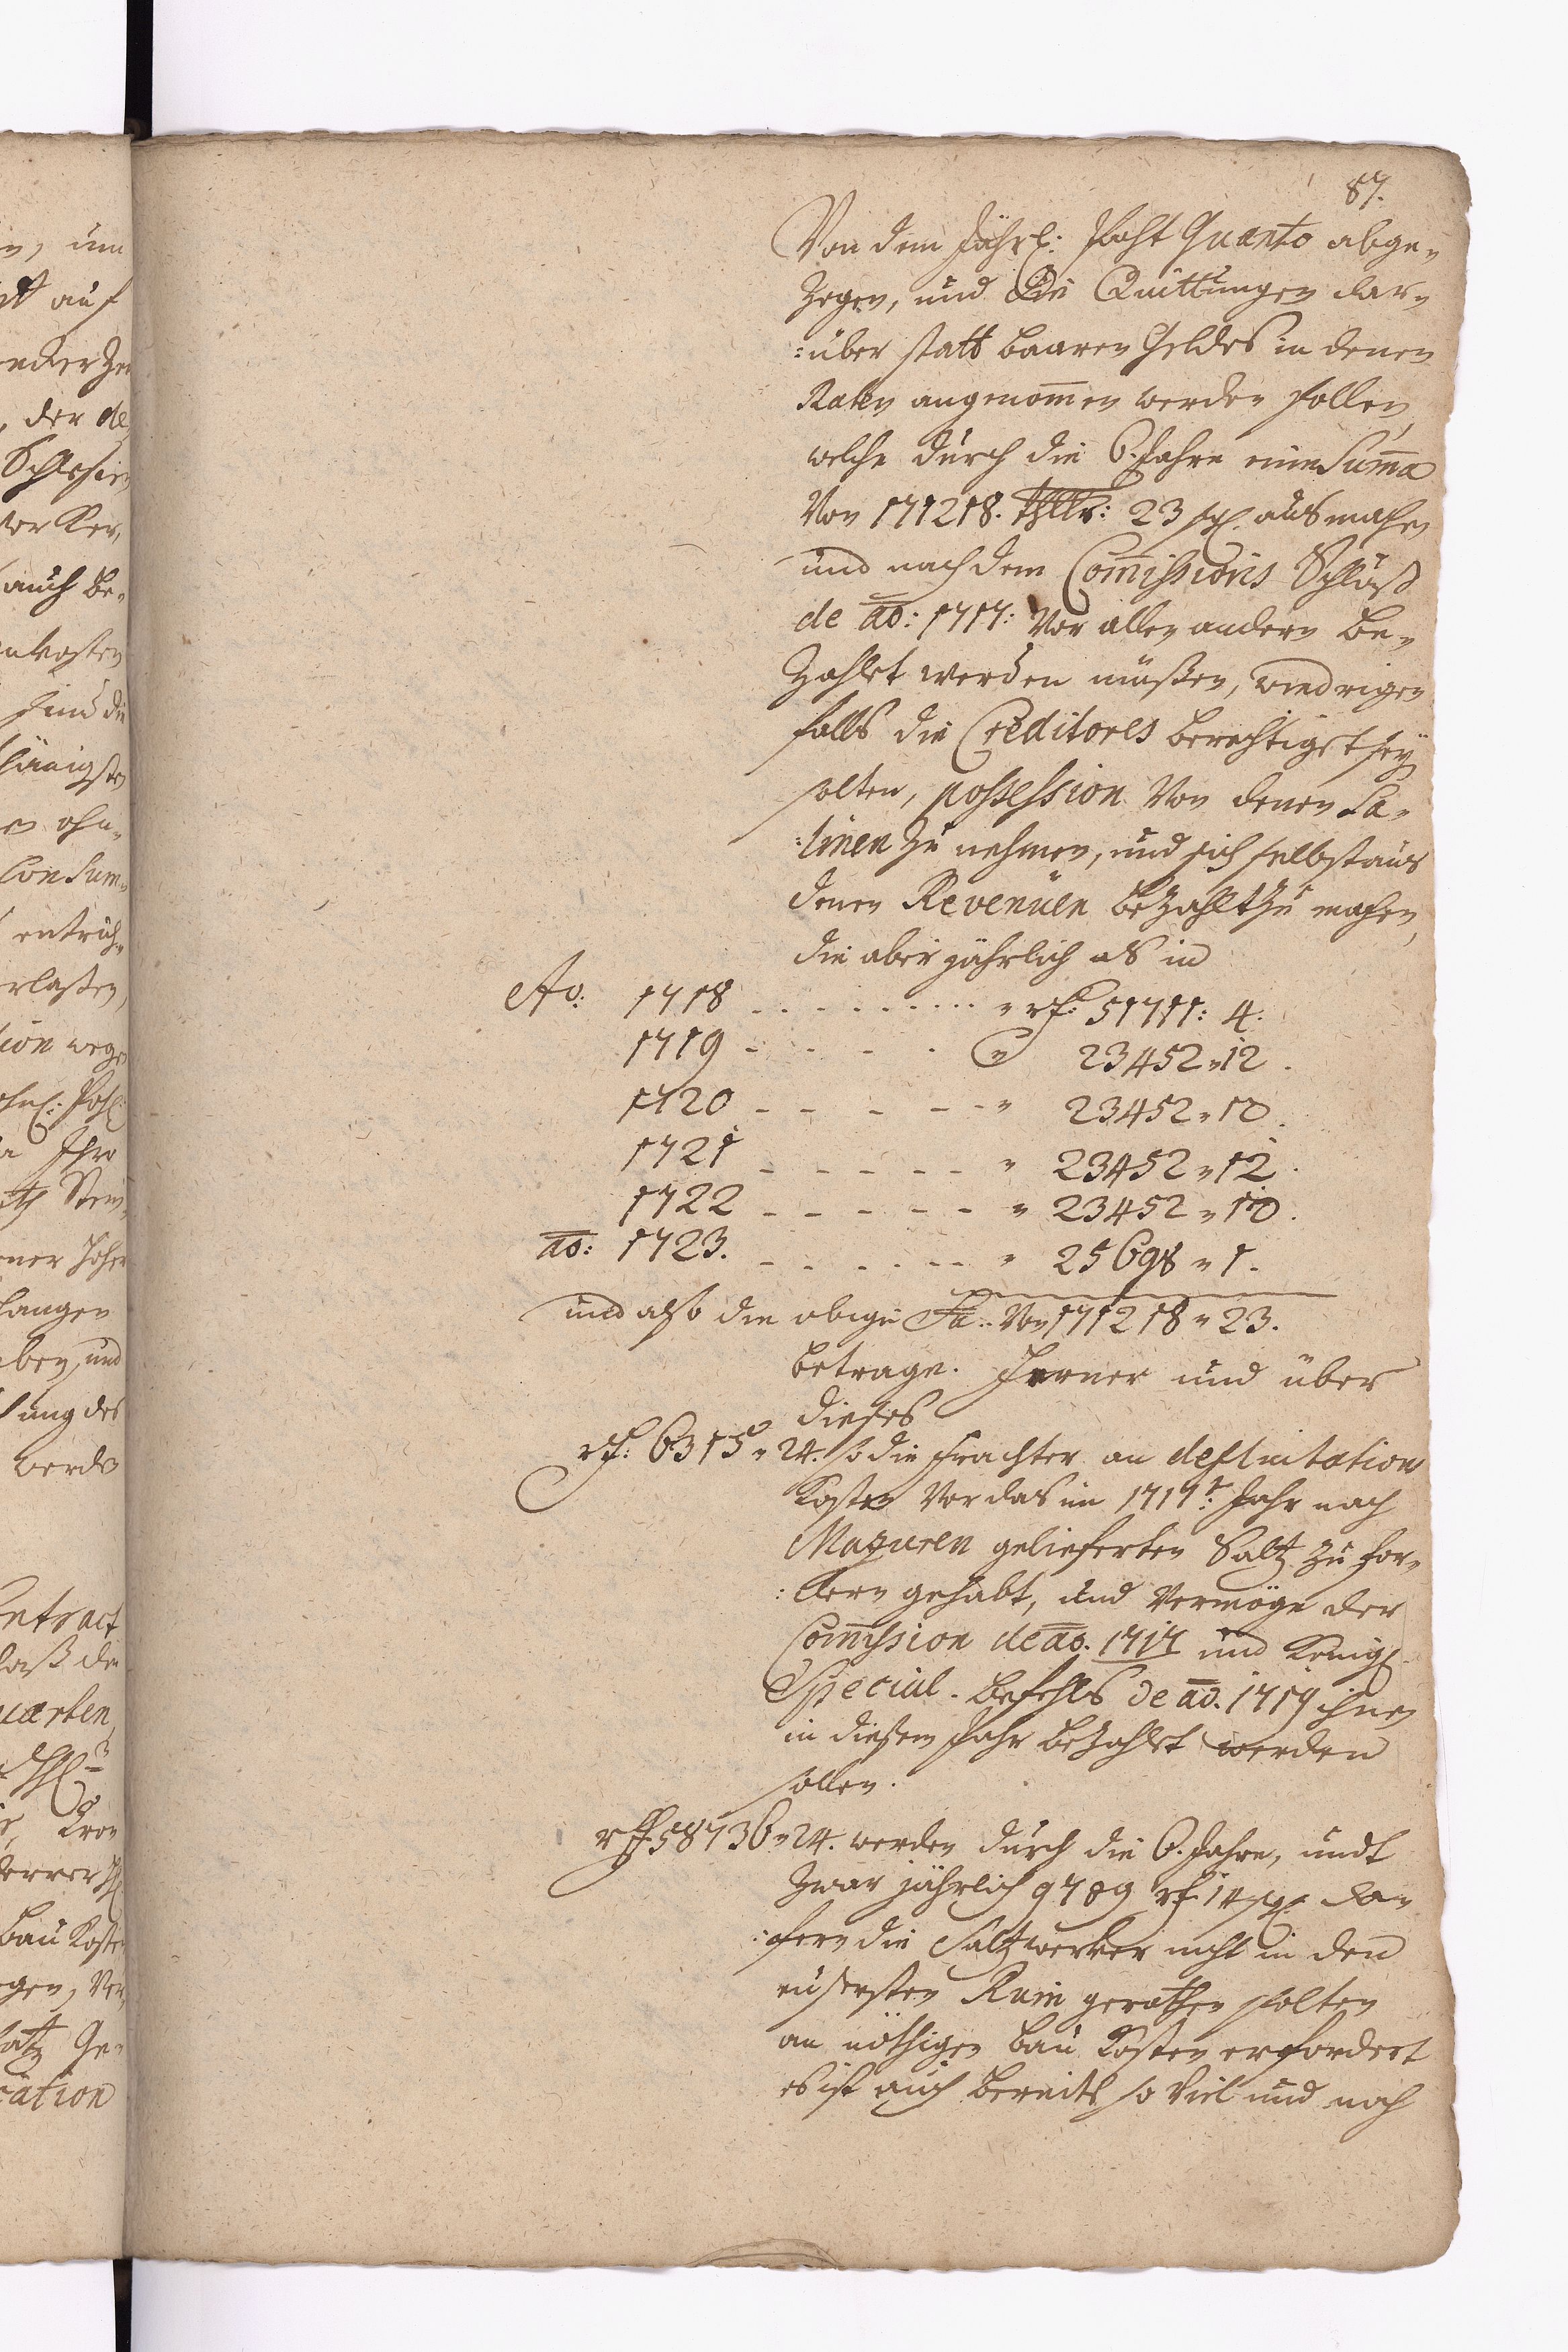 87.
Von dem Jährl: Pacht Quanto abge-
zogen, und die Quittungen dar-
:über statt baaren Geldes in denen
Raten angenom̅en werden sollen,
welche durch die 6. Jahre eine Sum̅a
Von 171218. thllr: 23 sgl. ausmachen
und nach dem Com̅issions Schluß
de ao: 1717: Vor allen andern be-
zahlet werden müßen, wiedrigen
falls die Creditores berechtiget seÿ
solten, possession Von denen Sa-
:linen zu nehmen, und sich selbst aus
denen Revenuen bezahlt zu machen,
die aber jährlich als in
Ao: 1718 - - - - - - - - - " rf: 51711: 4.
1719 - - - - - " 23452 " 12.
1720 - - - - - " 23452 " 10.
1721 - - - - - " 23452 " 12.
1722 - - - - - " 23452 " 10.
ao: 1723. - - - - - - " 25698 " 1.
und also die obige Sa.. Von 171218 " 23.
betrage. Ferner und über
dieses
rf: 6315 " 24. so die Frachter an
Kosten Vor das im 1717t: Jahr nach
Mazuren gelieferten Saltz zu for-
:dern gehabt, und Vermöge der
Com̅ission de ao. 1717 und Königl
Special-Befehls de ao. 1719 ihnen
in diesem Jahr bezahlet werden
sollen.
rf 58736 " 24. werden durch die 6. Jahre, undt
zwar jährlich 9789 rf 14 sgl. da-
:fern die Saltzwerker nicht in den
eusersten Ruin gerathen solten
an nöthigen Bau Kosten erfordert
es ist auch bereits so viel und noch